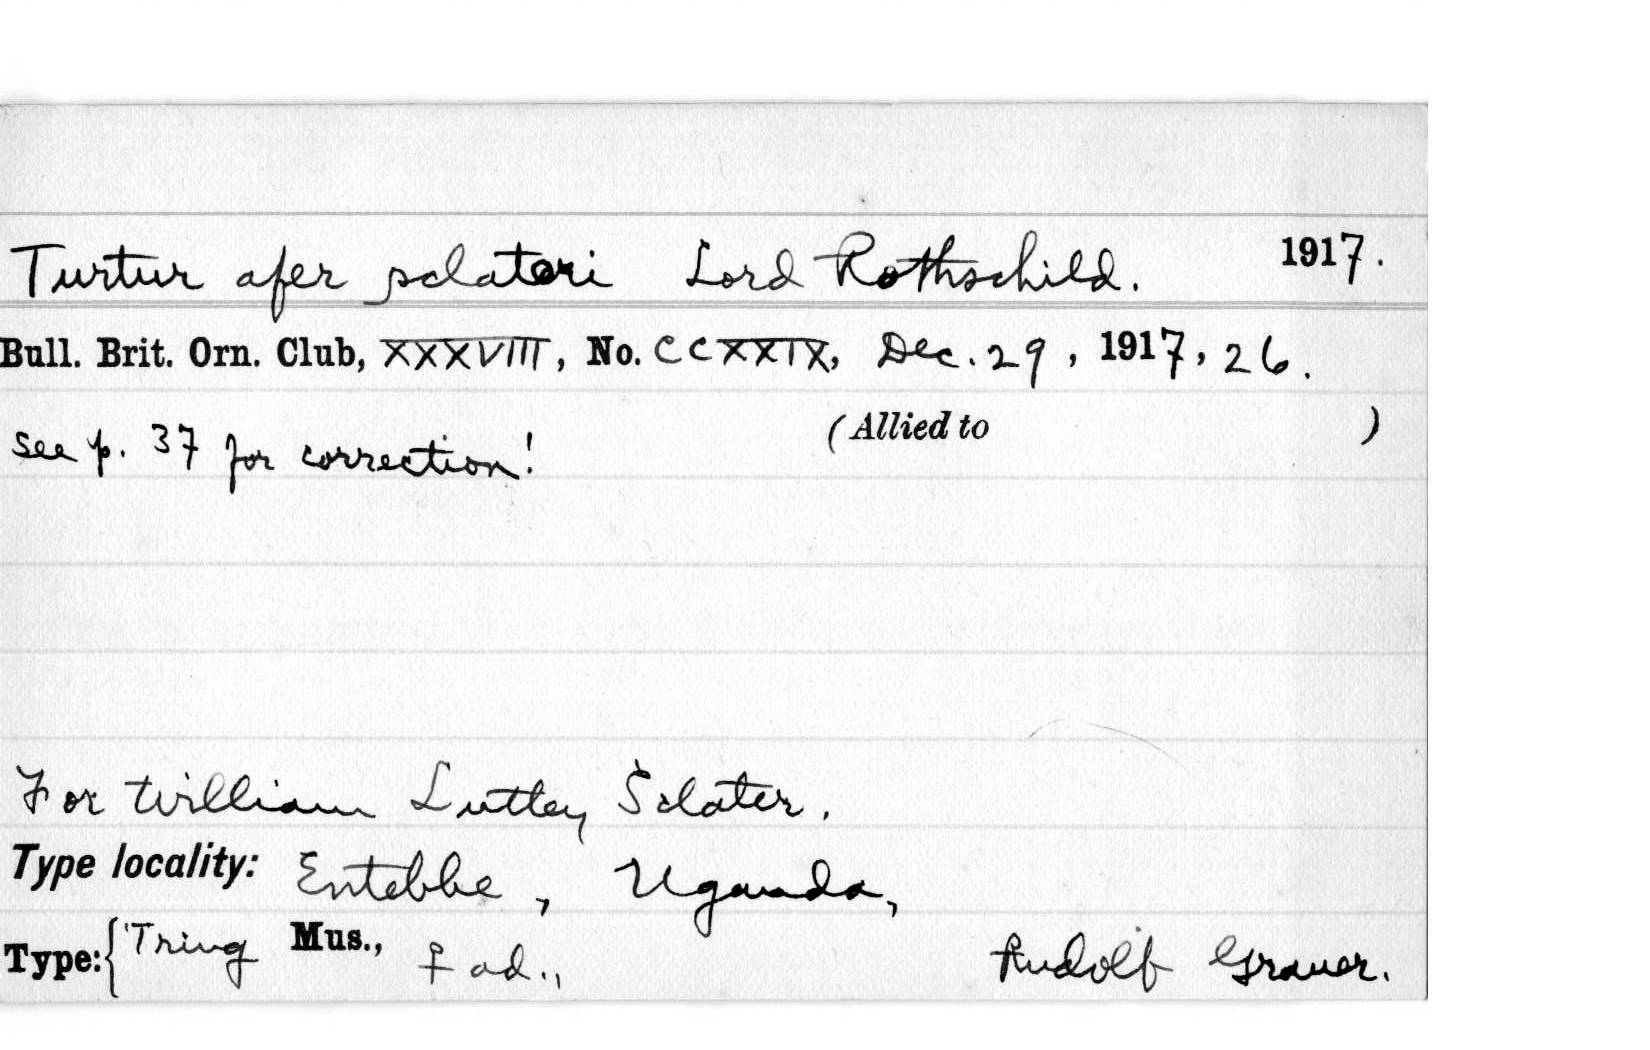 Turtur afer sclateri Lord Rothschild. 1917.
Bull. Brit. Orn. Club, XXXVIII, No. CCXXIX, Dec. 29, 1917, 26.
see p. 37 for correction! (Allied to )
For William Lutley Sclater.
Type locality: Entebbe, Uganda,
Type: { Tring Mus., ♀ ad., Rudolf Grauer.